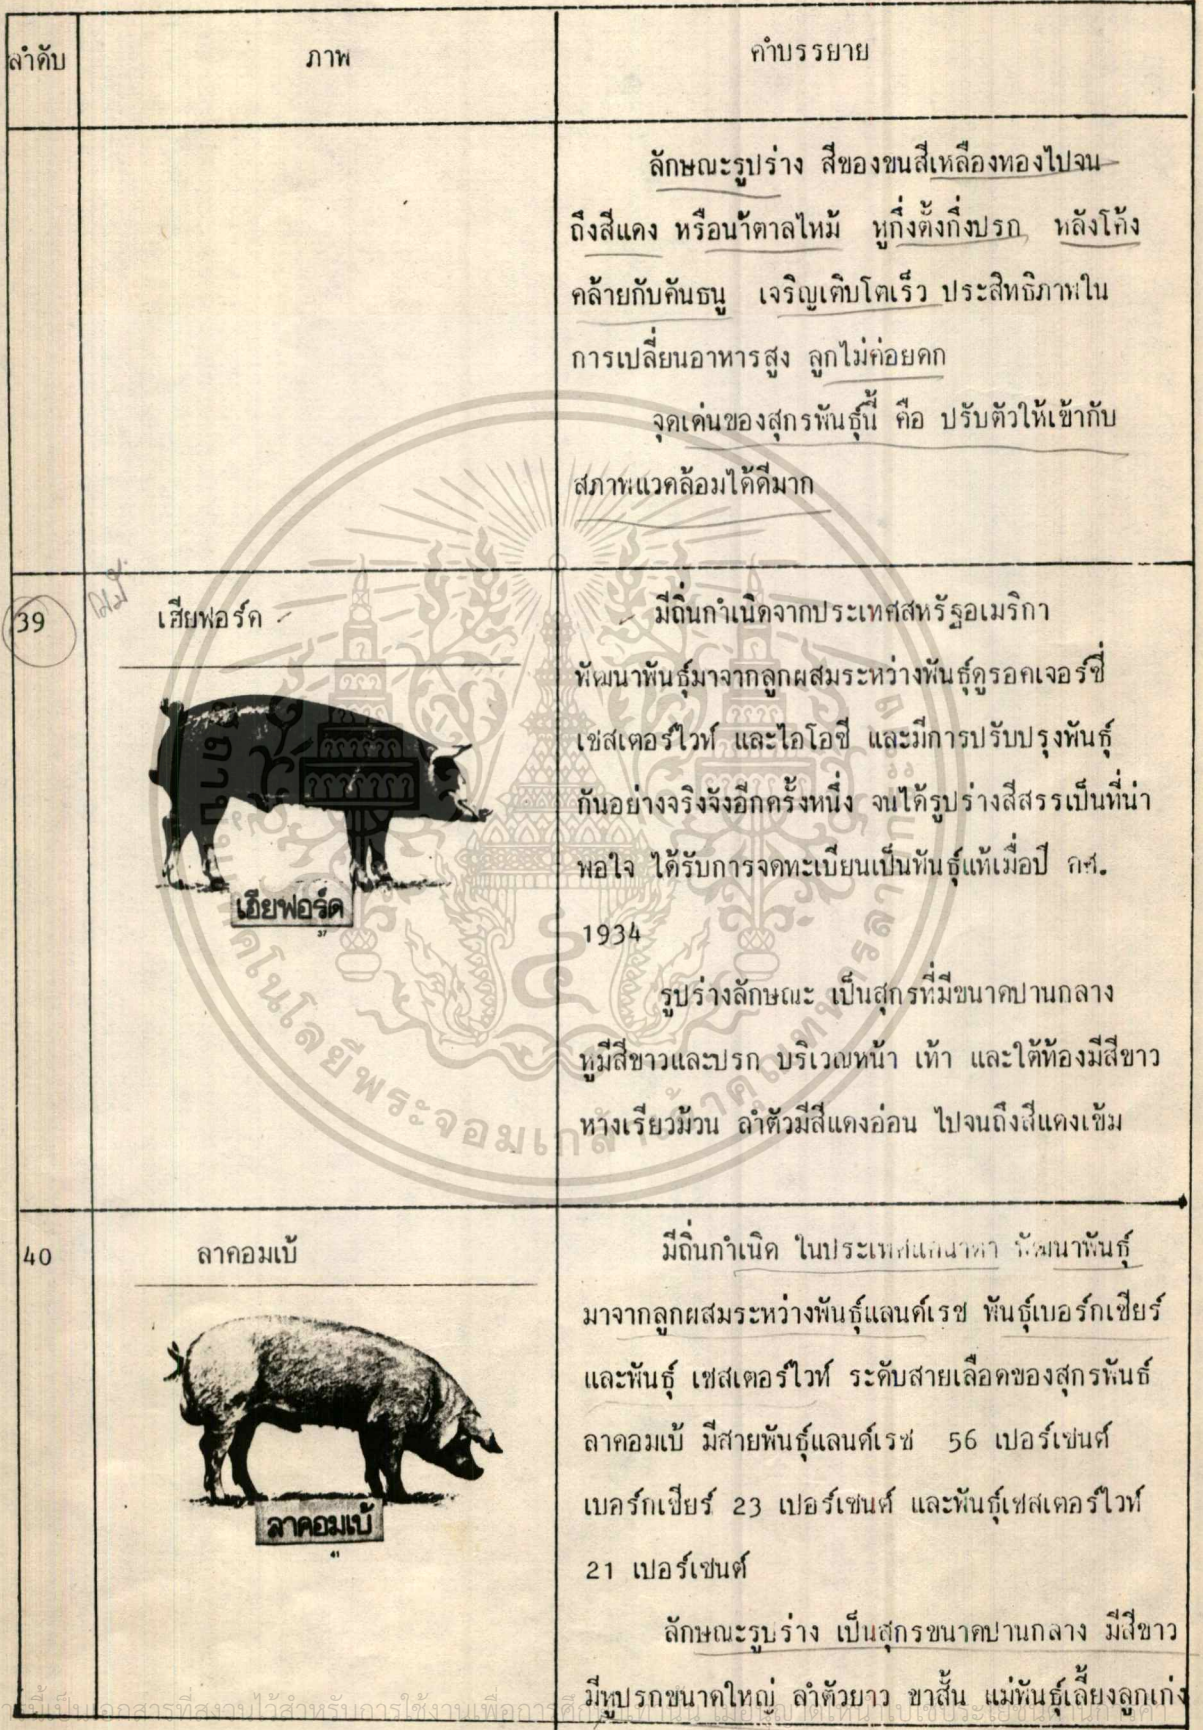 ลำดับ ภาพ คำบรรยาย
ลักษณะรูปร่าง สีของขนสีเหลืองทองไปจน
ถึงสีแดง หรือน้ำตาลไหม้ หูกึ่งตั้งกึ่งปรก หลังโค้ง
คล้ายกับคันธนู เจริญเติบโตเร็ว ประสิทธิภาพใน
การเปลี่ยนอาหารสูง ลูกไม่ค่อยดก
จุดเด่นของสุกรพันธุ์นี้ คือ ปรับตัวให้เข้ากับ
สภาพแวดล้อมได้ดีมาก
39 เฮียฟอร์ด มีถิ่นกำเนิดจากประเทศสหรัฐอเมริกา
พัฒนาพันธุ์มาจากลูกผสมระหว่างพันธุ์ดูรอคเจอร์ซี่
เชสเตอร์ไวท์ และไอโอซี และมีการปรับปรุงพันธุ์
กันอย่างจริงจังอีกครั้งหนึ่ง จนได้รูปร่างสีสรรเป็นที่น่า
พอใจ ได้รับการจดทะเบียนเป็นพันธุ์แท้เมื่อปี คศ.
1934
เฮียฟอร์ด
37
รูปร่างลักษณะ เป็นสุกรที่มีขนาดปานกลาง
หูมีสีขาวและปรก บริเวณหน้า เท้า และใต้ท้องมีสีขาว
หางเรียวม้วน ลำตัวมีสีแดงอ่อน ไปจนถึงสีแดงเข้ม
40 ลาคอมเบ้ มีถิ่นกำเนิด ในประเทศแคนาดา พัฒนาพันธุ์
มาจากลูกผสมระหว่างพันธุ์แลนด์เรซ พันธุ์เบอร์กเชียร์
และพันธุ์ เชสเตอร์ไวท์ ระดับสายเลือดของสุกรพันธ์
ลาคอมเบ้ มีสายพันธุ์แลนด์เรซ 56 เปอร์เซนต์
เบอร์กเชียร์ 23 เปอร์เซนต์ และพันธุ์เชสเตอร์ไวท์
21 เปอร์เซนต์
ลาคอมเบ้
41
ลักษณะรูปร่าง เป็นสุกรขนาดปานกลาง มีสีขาว
มีหูปรกขนาดใหญ่ ลำตัวยาว ขาสั้น แม่พันธุ์เลี้ยงลูกเก่ง